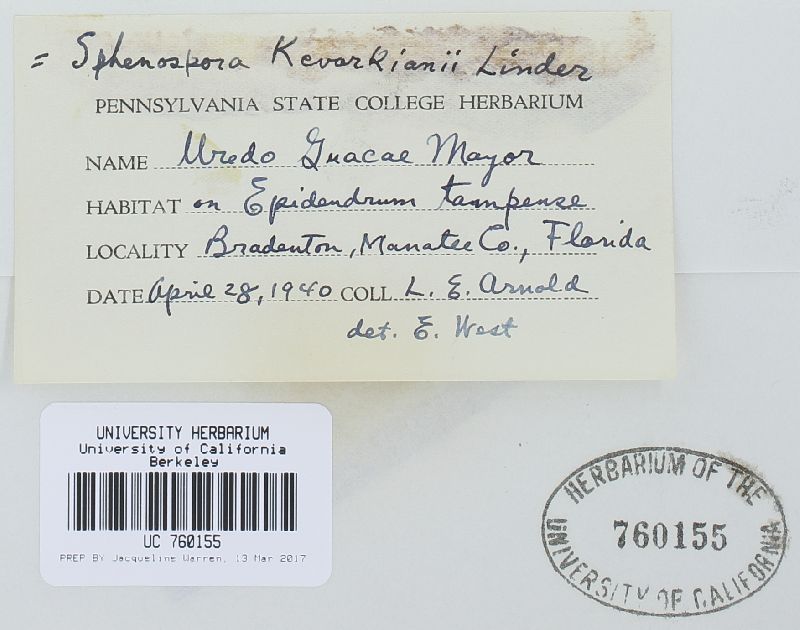 = Sphenospora Kevorkianii Linder
PENNSYLVANIA STATE COLLEGE HERBARIUM
NAME Uredo Guacae Mayor
HABITAT on Epidendrum tampense
LOCALITY Bradenton, Manatee Co., Florida
DATE April 28, 1940 COLL L. E. Arnold
det. E. West
UNIVERSITY HERBARIUM
University of California
Berkeley
UC 760155
PREP BY Jacqueline Warren, 13 Mar 2017
HERBARIUM OF THE
760155
UNIVERSITY OF CALIFORNIA